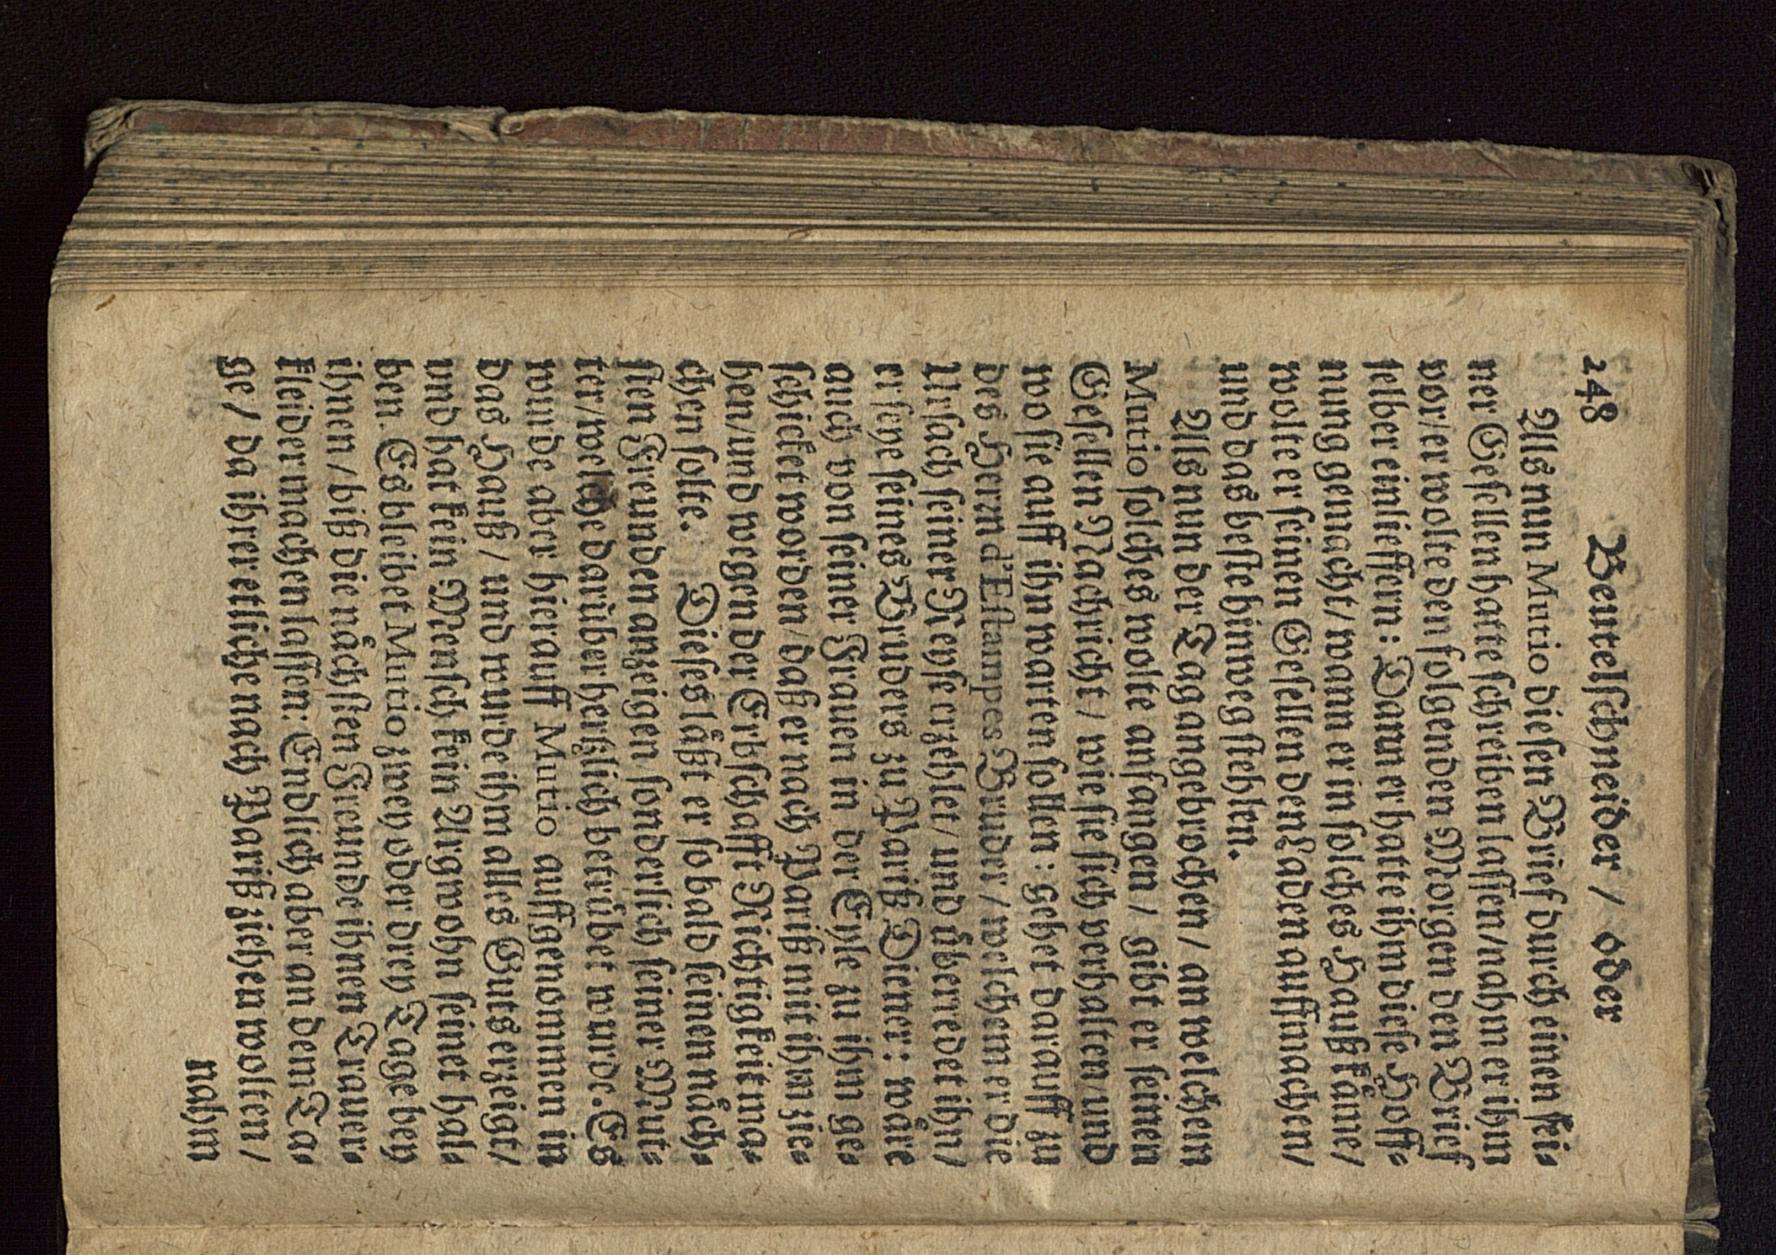 248 Beutelschneider / oder
Als nun Mutio diesen Brief durch einen sei⸗
ner Gesellen hatte schreiben lassen/nahm er ihn
vor/er wolte den folgenden Morgen den Brief
selber einlieffern: Dann er hatte ihm diese Hoff⸗
nung gemacht/ wann er in solches Hauß käme/
wolte er seinen Gesellen den Laden auffmachen/
und das beste hinweg stehlen.
Als nun der Tag angebrochen/ an welchem
Mutio solches wolte anfangen / gibt er seinen
Gesellen Nachricht / wie sie sich verhalten und
wo sie auff ihn warten sollen: gehet darauff zu
des Herꝛn d'Estampes Bruder / welchem er die
Ursach seiner Reyse erzehlet/ und überredet ihn/
er seye seines Bruders zu Pariß Diener: wäre
auch von seiner Frauen in der Eyle zu ihm ge⸗
schicket worden/ daß er nach Pariß mit ihm zie⸗
hen/und wegen der Erbschafft Richtigkeit ma⸗
chen solte. Dieses läßt er so bald seinen näch⸗
sten Freunden anzeigen sonderlich seiner Mut⸗
ter/welche darüber hertzlich betrübet wurde. Es
wurde aber hierauff Mutio auffgenommen in
das Hauß / und wurde ihm alles Guts erzeigt/
und hat kein Mensch kein Argwohn seinet hal⸗
ben. Es bleibet Mutio zwey oder drey Tage bey
ihnen / biß die nächsten Freunde ihnen Trauer⸗
kleider machen lassen: Endlich aber an dem Ta⸗
ge / da ihrer etliche nach Pariß ziehen wolten/
nahm